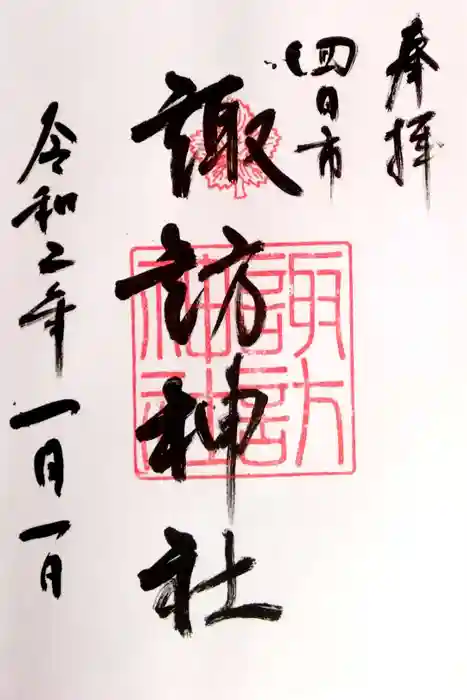 奉拝
四日市
諏訪神社
令和二年一月一日
諏訪神社